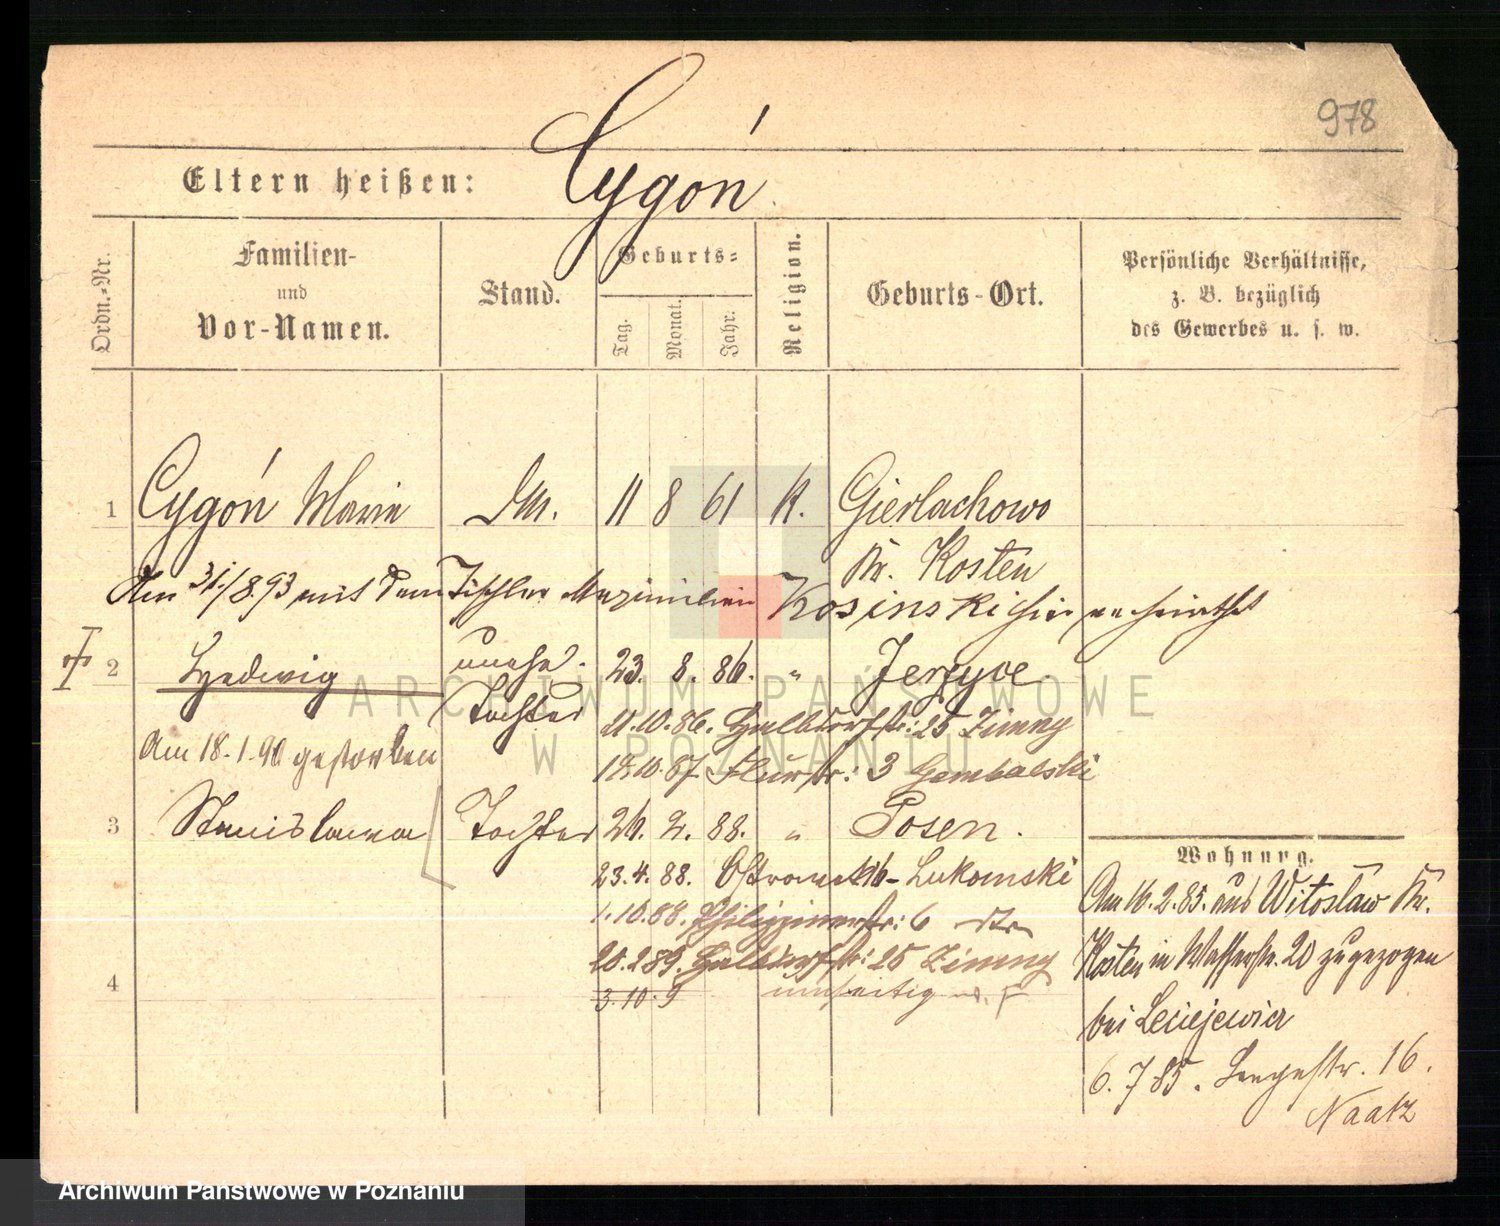 978
Cygón
Eltern heißen:
Ordn.-Nr.
Familien-
und
Vor-Namen.
Stand.
Geburts-
Tag.
Monat.
Jahr.
Religion.
Geburts-Ort.
Persönliche Verhältnisse,
z. B. bezüglich
des Gewerbes u. s. w.
1 Cygón Marie DM. 11 8 61 K. Gierlachowo
Kr. Kosten
Am 31./8.93 mit dem Tischler Maximilian Kosinski hier verheirathet
2 Hedwig unehel. 23. 8. 86. " Jerzyce.
Tochter
11.10.86. Halbdorfstr: 25 Zimny
Am 18.1.90 gestorben
18.10.87 Flurstr: 3 Gembalski
3 Stanislawa Tochter 26. 2. 88. " Posen.
23.4.88. 16 - Lukomski
1.10.88. Philippinenstr: 6 dto
20.2.89. Halbdorfstr: 25 Zimny
4
3.10.9
umseitig
Wohnung.
Am 16.2.85. aus Witoslaw Kr.
Kosten in Wasserstr. 20 zugezogen
bei Leciejewicz
6.7.85. Langestr. 16.
Naatz
ARCHIWUM PAŃSTWOWE
W POZNANIU
Archiwum Państwowe w Poznaniu